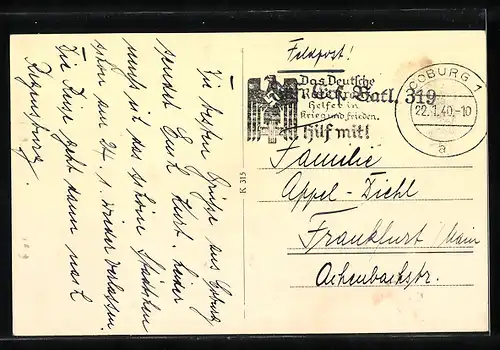 Die besten Grüße aus Coburg
sendet Euch Kurt. Leider
muss ich das schöne Städtchen
schon am 24. 1. wieder verlassen.
Die Reise geht dann nach
Regensburg.
K 315
Feldpost!
Das Deutsche
Rote Kreuz
Helfer in
Krieg und Frieden.
Hilf mit!
Batl. 319
COBURG 1
22.1.40.-10
a
Familie
Appel-Diehl
Frankfurt Main
Achenbachstr.